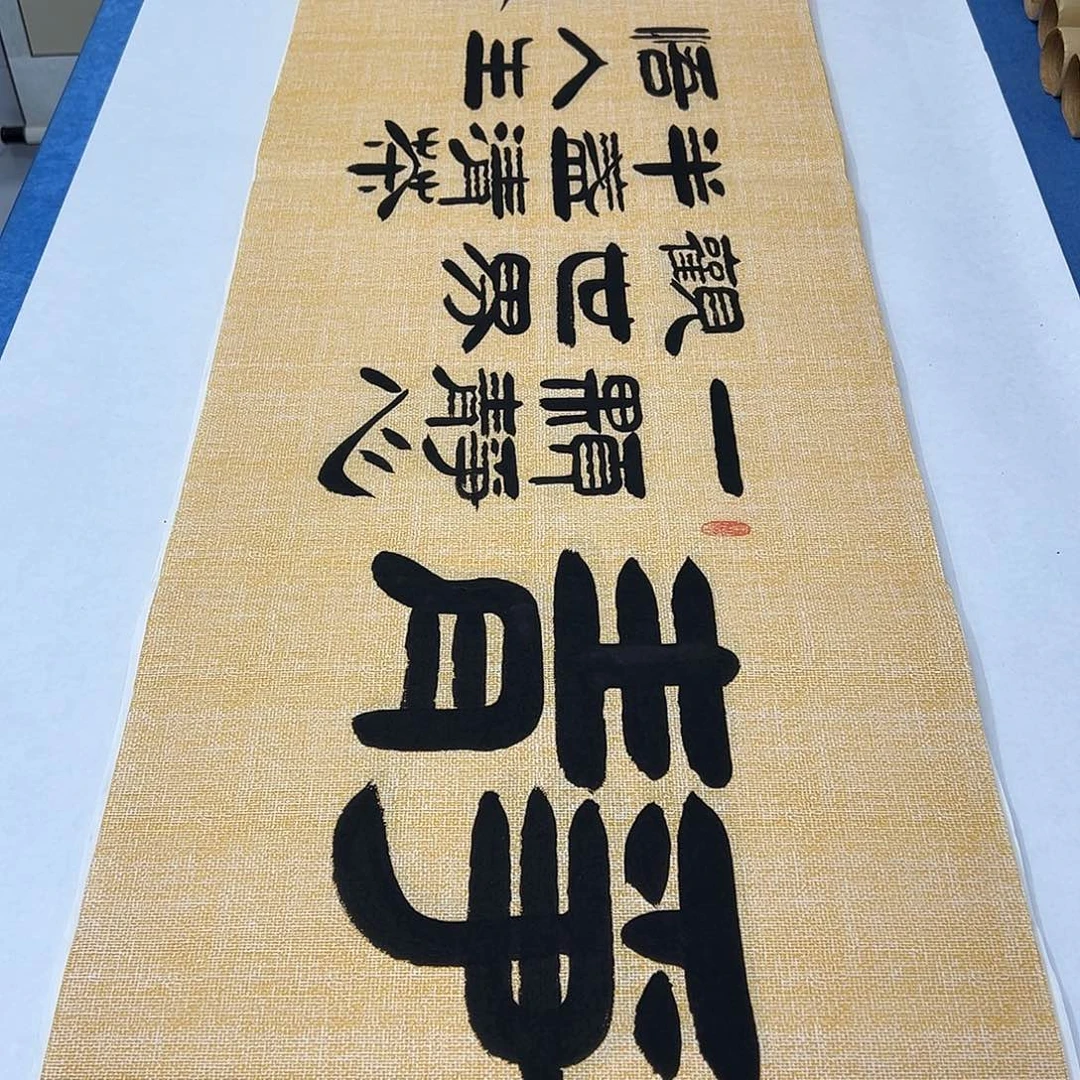 靜
一顆靜心
觀世界
半盞清茶
悟人生